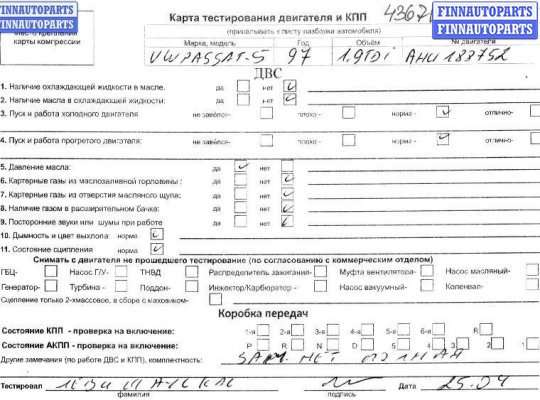 FINNAUTOPARTS
FINNAUTOPARTS
карты компрессии
Карта тестирования двигателя и КПП
FINNAUTOPARTS
FINNAUTOPARTS
(прикалывать к листу разборки автомобиля)
VW PASSAT-5 97 1.9TDi AHU 183752
Марка, модель Год Объём № двигателя
ДВС
1. Наличие охлаждающей жидкости в масле. да нет
2. Наличие масла в охлаждающей жидкости: да нет
3. Пуск и работа холодного двигателя не завёлся- плохо - норма - отлично-
4. Пуск и работа прогретого двигателя: не завёлся- плохо - норма - отлично-
5. Давление масла: да нет
6. Картерные газы из маслозаливной горловины: да нет
7. Картерные газы из отверстия масляного щупа: да нет
8. Наличие газом в расширительном бачке: да нет
9. Посторонние звуки или шумы при работе да нет
10. Дымность и цвет выхлопа: норма
11. Состояние сцепления норма
Снимать с двигателя не прошедшего тестирование (по согласованию с коммерческим отделом)
ГБЦ- Насос Г/У- ТНВД Распределитель зажигания- Муфта вентилятора- Насос масляный-
Генератор- Турбина - Поддон- Инжектор/Карбюратор - Насос вакуумный- Коленвал-
Сцепление только 2-хмассовое, в сборе с маховиком-
Коробка передач
Состояние КПП - проверка на включение: 1-я 2-я 3-я 4-я 5-я 6-я R
Состояние АКПП - проверка на включение: P R N D 5 4 3 2 1
Другие замечания (по работе ДВС и КПП), комплектность:
Тестировал Дата 25.04
фамилия подпись